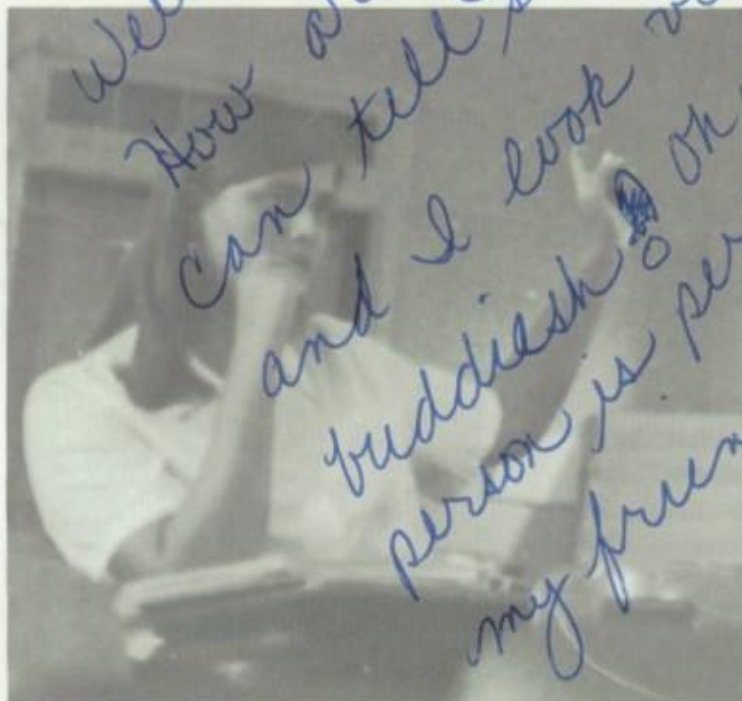 Well
How
can tell
and I look
buddiesh! oh
person is per
my frien